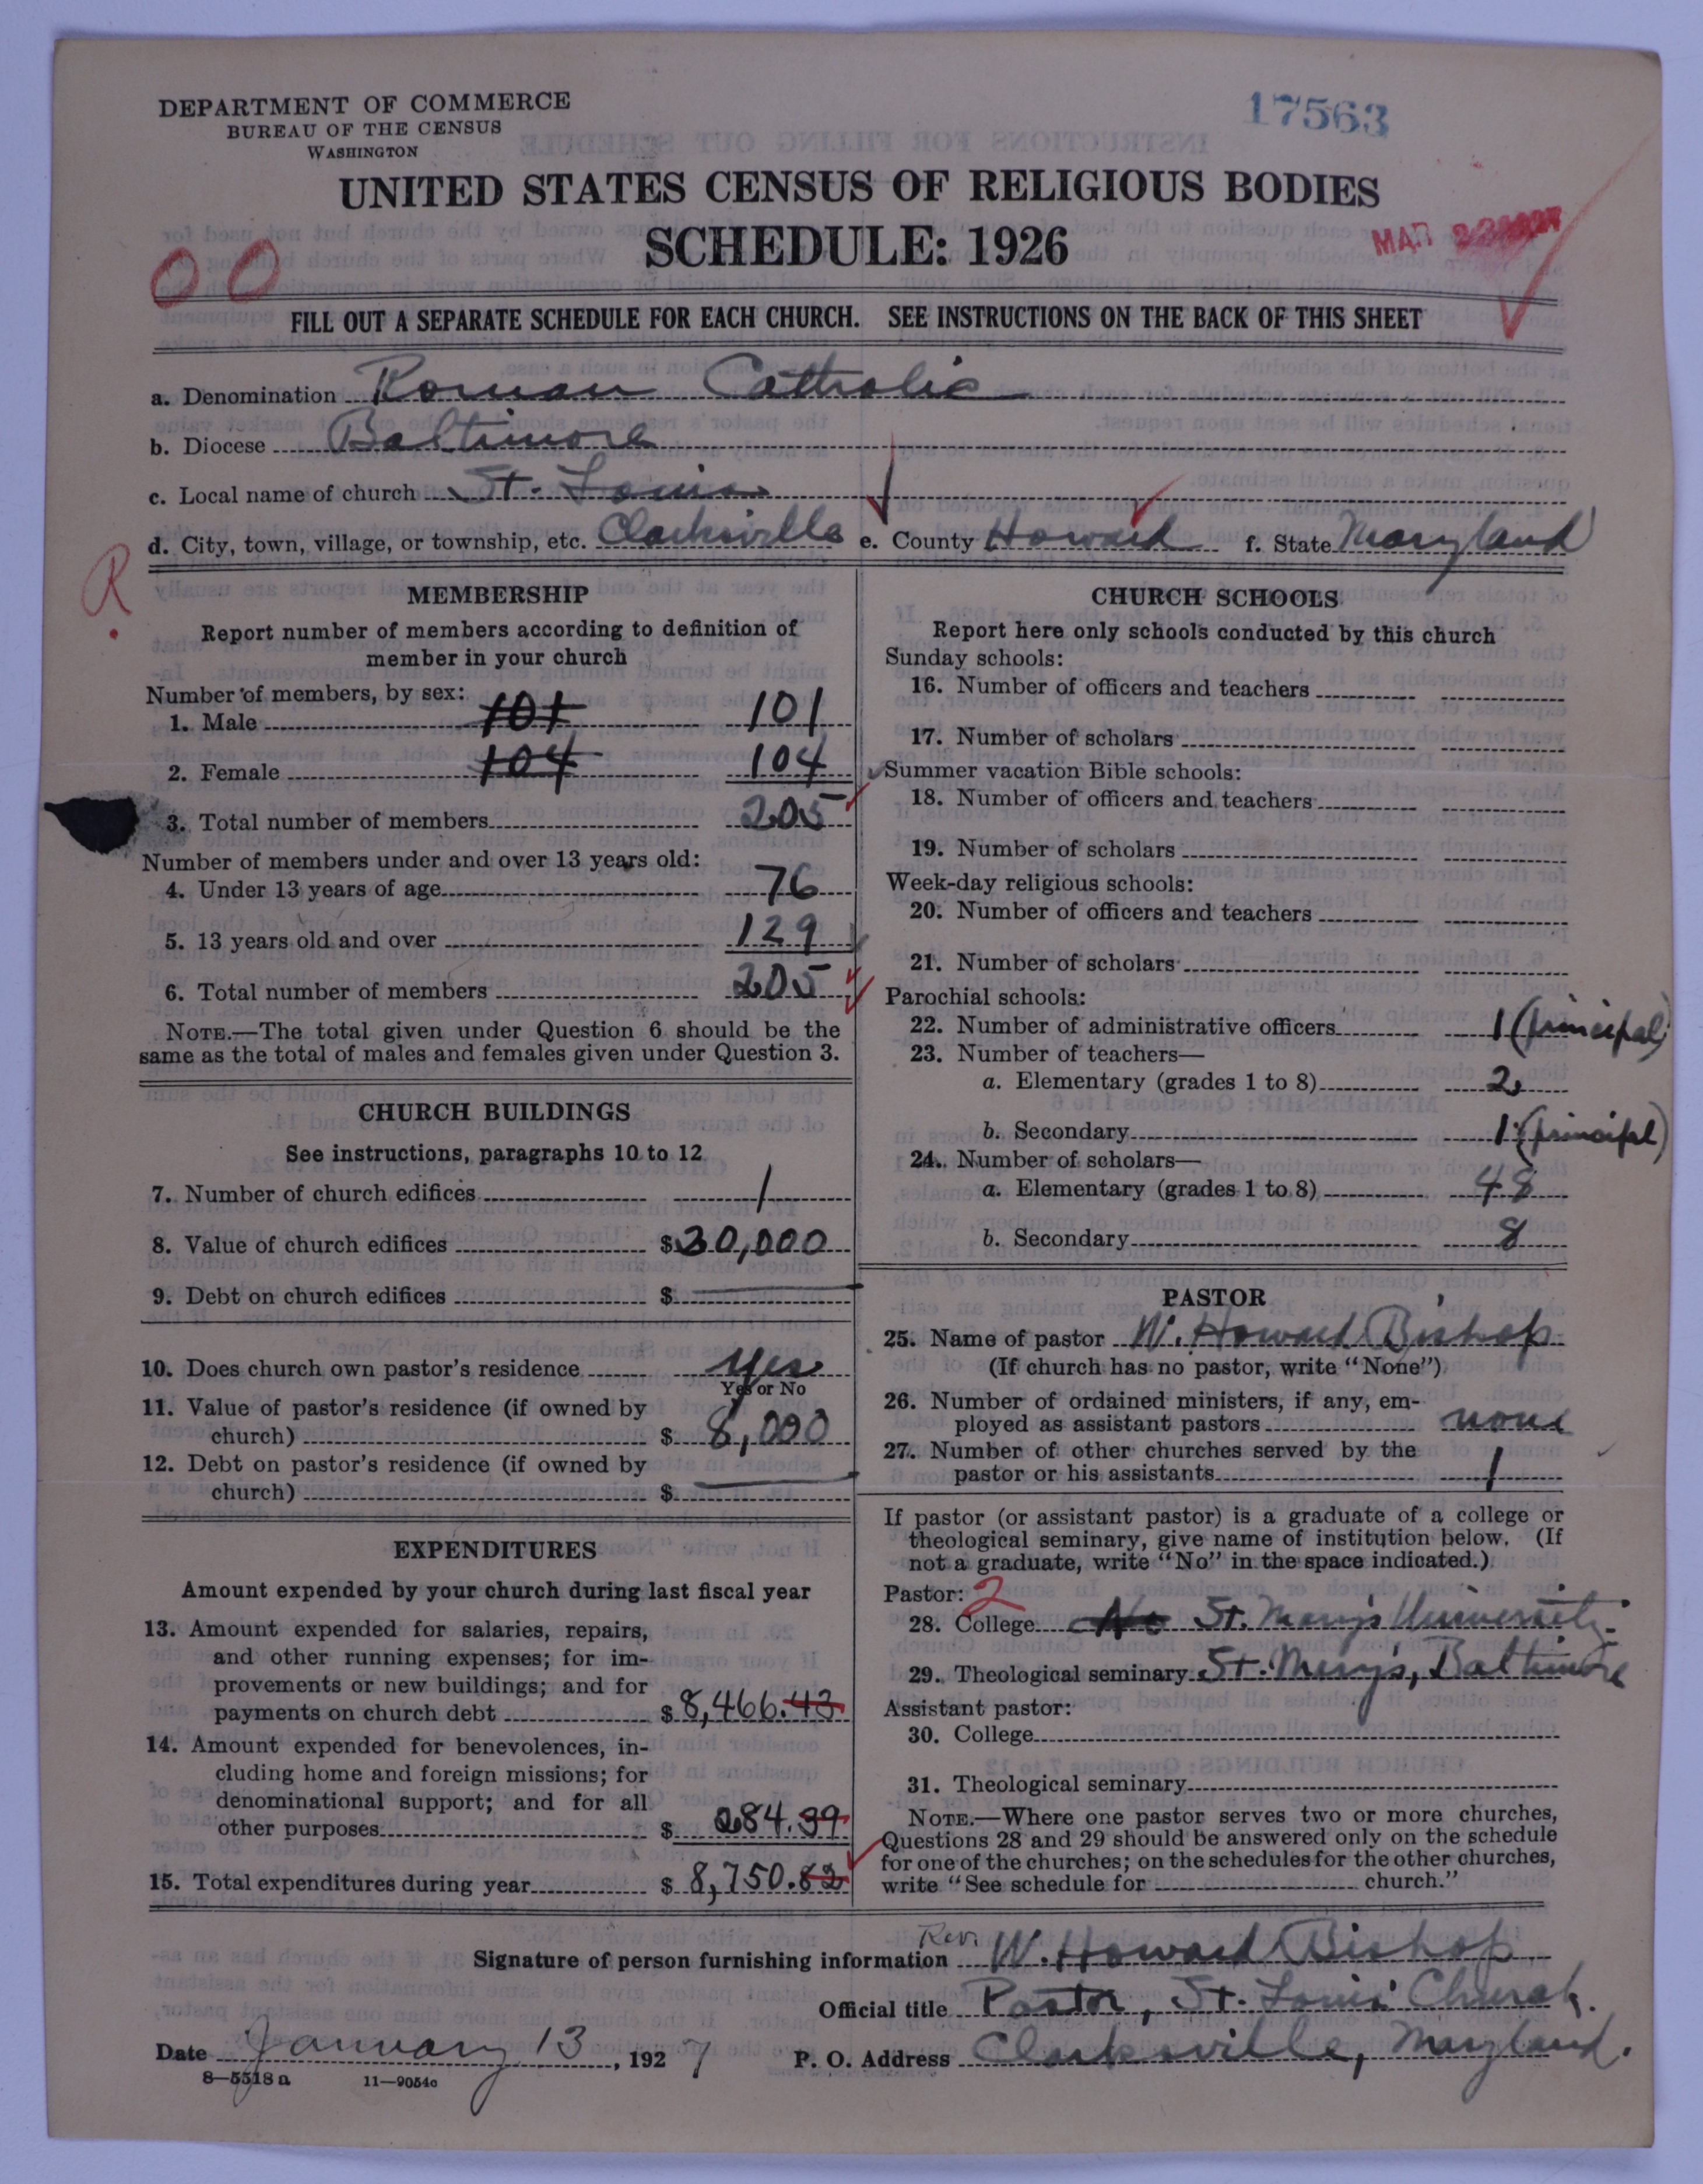 DEPARTMENT OF COMMERCE
BUREAU OF THE CENSUS
WASHINGTON
17563
UNITED STATES CENSUS OF RELIGIOUS BODIES
SCHEDULE: 1926
MAR 1927
00
FILL OUT A SEPARATE SCHEDULE FOR EACH CHURCH. SEE INSTRUCTIONS ON THE BACK OF THIS SHEET
a. Denomination Roman Catholic
b. Diocese Baltimore
c. Local name of church St. Louis
d. City, town, village, or township, etc. Clarksville e. County Howard f. State Maryland
R.
MEMBERSHIP
Report number of members according to definition of
member in your church
Number of members, by sex:
1. Male 101 101
2. Female 104 104
3. Total number of members 205
Number of members under and over 13 years old:
4. Under 13 years of age 76
5. 13 years old and over 129
6. Total number of members 205
NOTE.—The total given under Question 6 should be the
same as the total of males and females given under Question 3.
CHURCH BUILDINGS
See instructions, paragraphs 10 to 12
7. Number of church edifices 1
8. Value of church edifices $30,000
9. Debt on church edifices $
10. Does church own pastor's residence yes
Yes or No
11. Value of pastor's residence (if owned by
church) $ 8,000
12. Debt on pastor's residence (if owned by
church) $
EXPENDITURES
Amount expended by your church during last fiscal year
13. Amount expended for salaries, repairs,
and other running expenses; for im-
provements or new buildings; and for
payments on church debt $ 8,466.43
14. Amount expended for benevolences, in-
cluding home and foreign missions; for
denominational support; and for all
other purposes $ 284.39
15. Total expenditures during year $ 8,750.82
CHURCH SCHOOLS
Report here only schools conducted by this church
Sunday schools:
16. Number of officers and teachers
17. Number of scholars
Summer vacation Bible schools:
18. Number of officers and teachers
19. Number of scholars
Week-day religious schools:
20. Number of officers and teachers
21. Number of scholars
Parochial schools:
22. Number of administrative officers 1 (principal)
23. Number of teachers—
a. Elementary (grades 1 to 8) 2
b. Secondary 1 (principal)
24. Number of scholars—
a. Elementary (grades 1 to 8) 48
b. Secondary 8
PASTOR
25. Name of pastor W. Howard Bishop
(If church has no pastor, write "None")
26. Number of ordained ministers, if any, em-
ployed as assistant pastors none
27. Number of other churches served by the
pastor or his assistants 1
If pastor (or assistant pastor) is a graduate of a college or
theological seminary, give name of institution below. (If
not a graduate, write "No" in the space indicated.)
Pastor: 2
28. College No St. Mary's University
29. Theological seminary St. Mary's, Baltimore
Assistant pastor:
30. College
31. Theological seminary
NOTE.—Where one pastor serves two or more churches,
Questions 28 and 29 should be answered only on the schedule
for one of the churches; on the schedules for the other churches,
write "See schedule for church."
Signature of person furnishing information Rev. W. Howard Bishop
Official title Pastor, St. Louis Church.
Date January 13, 1927 P. O. Address Clarksville, Maryland.
8—5518 a 11—9054c